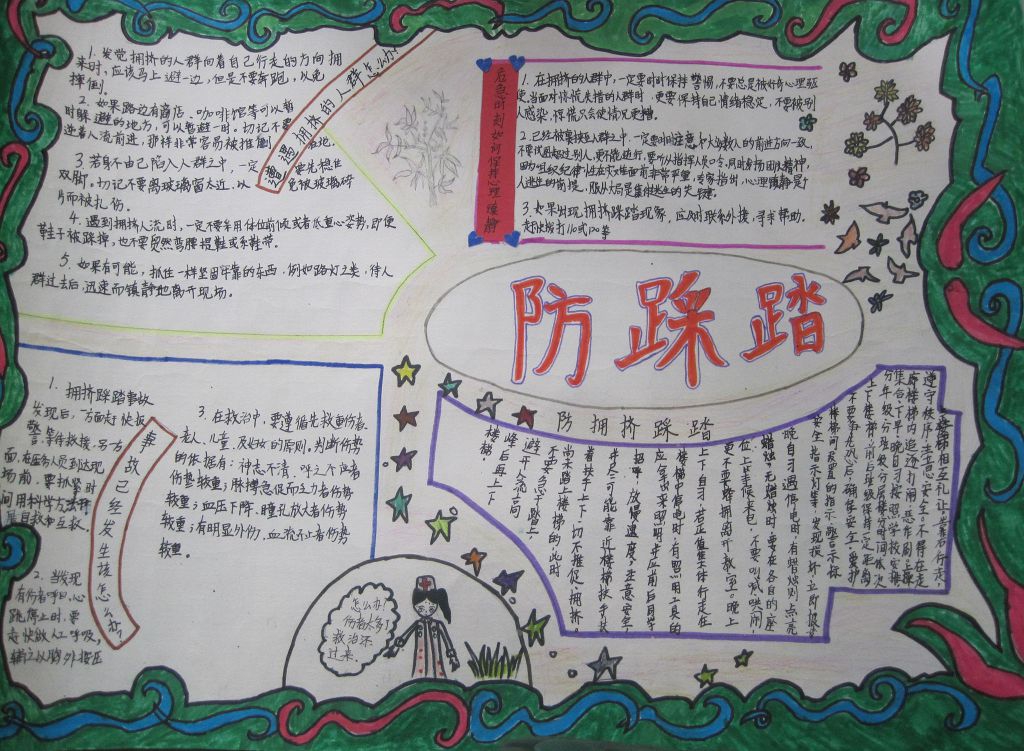 遭遇拥挤的人群怎么办
1. 发觉拥挤的人群向着自己行走的方向拥
来时，应该马上避一边，但是不要奔跑，以免
摔倒。
2. 如果路边有商店、咖啡馆等可以暂
时躲避的地方，可以暂避一时。切记不要
逆着人流前进，那样非常容易被推倒
3. 若身不由己陷入人群之中，一定要先稳住
双脚。切记不要离玻璃窗太近，以免被玻璃碎
片而被扎伤。
4. 遭到拥挤人流时，一定不要采用体位前倾或者低重心姿势，即便
鞋子被踩掉，也不要贸然弯腰提鞋或系鞋带。
5. 如果有可能，抓住一样坚固牢靠的东西，例如路灯之类，待人
群过去后，迅速而镇静地离开现场。
危急时刻如何保持心理镇静
1. 在拥挤的人群中，一定要时时保持警惕，不要总是被好奇心理驱
使。当面对惊慌失措的人群时，更要保持自己情绪稳定，不要被别
人感染，惊慌只会使情况更糟。
2. 已经被裹挟至人群之中，一定要时时注意与大多数人的前进方向一致，
不要试图超过别人，更不能逆行，要听从指挥人员口令。同时发扬团队精神，
因为组织纪律性在灾难面前非常重要，专家指出，心理镇静是个
人逃生的前提，服从大局是集体逃生的关键。
3. 如果出现拥挤踩踏现象，应及时联系外援，寻求帮助。
赶快拨打110或120等
防踩踏
事故已经发生该怎么办
1. 拥挤踩踏事故
发现后，一方面赶快报
警，等待救援，另一方
面，在医务人员到达现
场前，要抓紧时
间用科学的方法开
展自救和互救。
2. 当发现
有伤者呼吸、心
跳停止时，要
赶快做人工呼吸，
辅之以胸外按压
3. 在救治中，要遵循先救重伤者、
老人、儿童、及妇女的原则。判断伤势
的依据有：神志不清、呼之不应者
伤势较重；脉搏急促而乏力者伤势
较重；血压下降、瞳孔放大者伤势
较重；有明显外伤，血流不止者伤势
较重。
怎么办！
伤者太多了
救治还
过来.
防拥挤踩踏
上下楼梯相互礼让，靠右行走，
遵守秩序，注意安全。不得在走
廊楼梯内追逐打闹，恶作剧；课
集合、下早、晚自习，按照学校安排
分年级、分班、分层楼分时间依次
上下楼梯，前后班级保持一定距离
不要争先恐后，确保安全；爱护
楼梯间设置的指示、警示标
安全指示灯等，发现损坏立即报告
晚自习遇停电时，有蜡烛则点亮
蜡烛，无蜡烛时，要在各自的座
位上坐候来电，不要叫喊哄闹，
更不要拥挤离开教室。晚上
上下自习，若正值集体行走在
楼梯中停电时，有照明用工具的
应拿出来照明，并应前后同学
招呼，放慢速度，注意安全，
并尽可能靠近楼梯扶手，扶
着扶手上下，切不推促、拥挤。
尚未踏上楼梯的，此时
不要急于踏上
避开人流高
峰后再上下
楼梯。